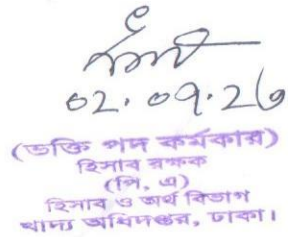 ০২.০৭.২৩
(ভক্তি পদ কর্মকার)
হিসাব রক্ষক
(পি, এ)
হিসাব ও অর্থ বিভাগ
খাদ্য অধিদপ্তর, ঢাকা।